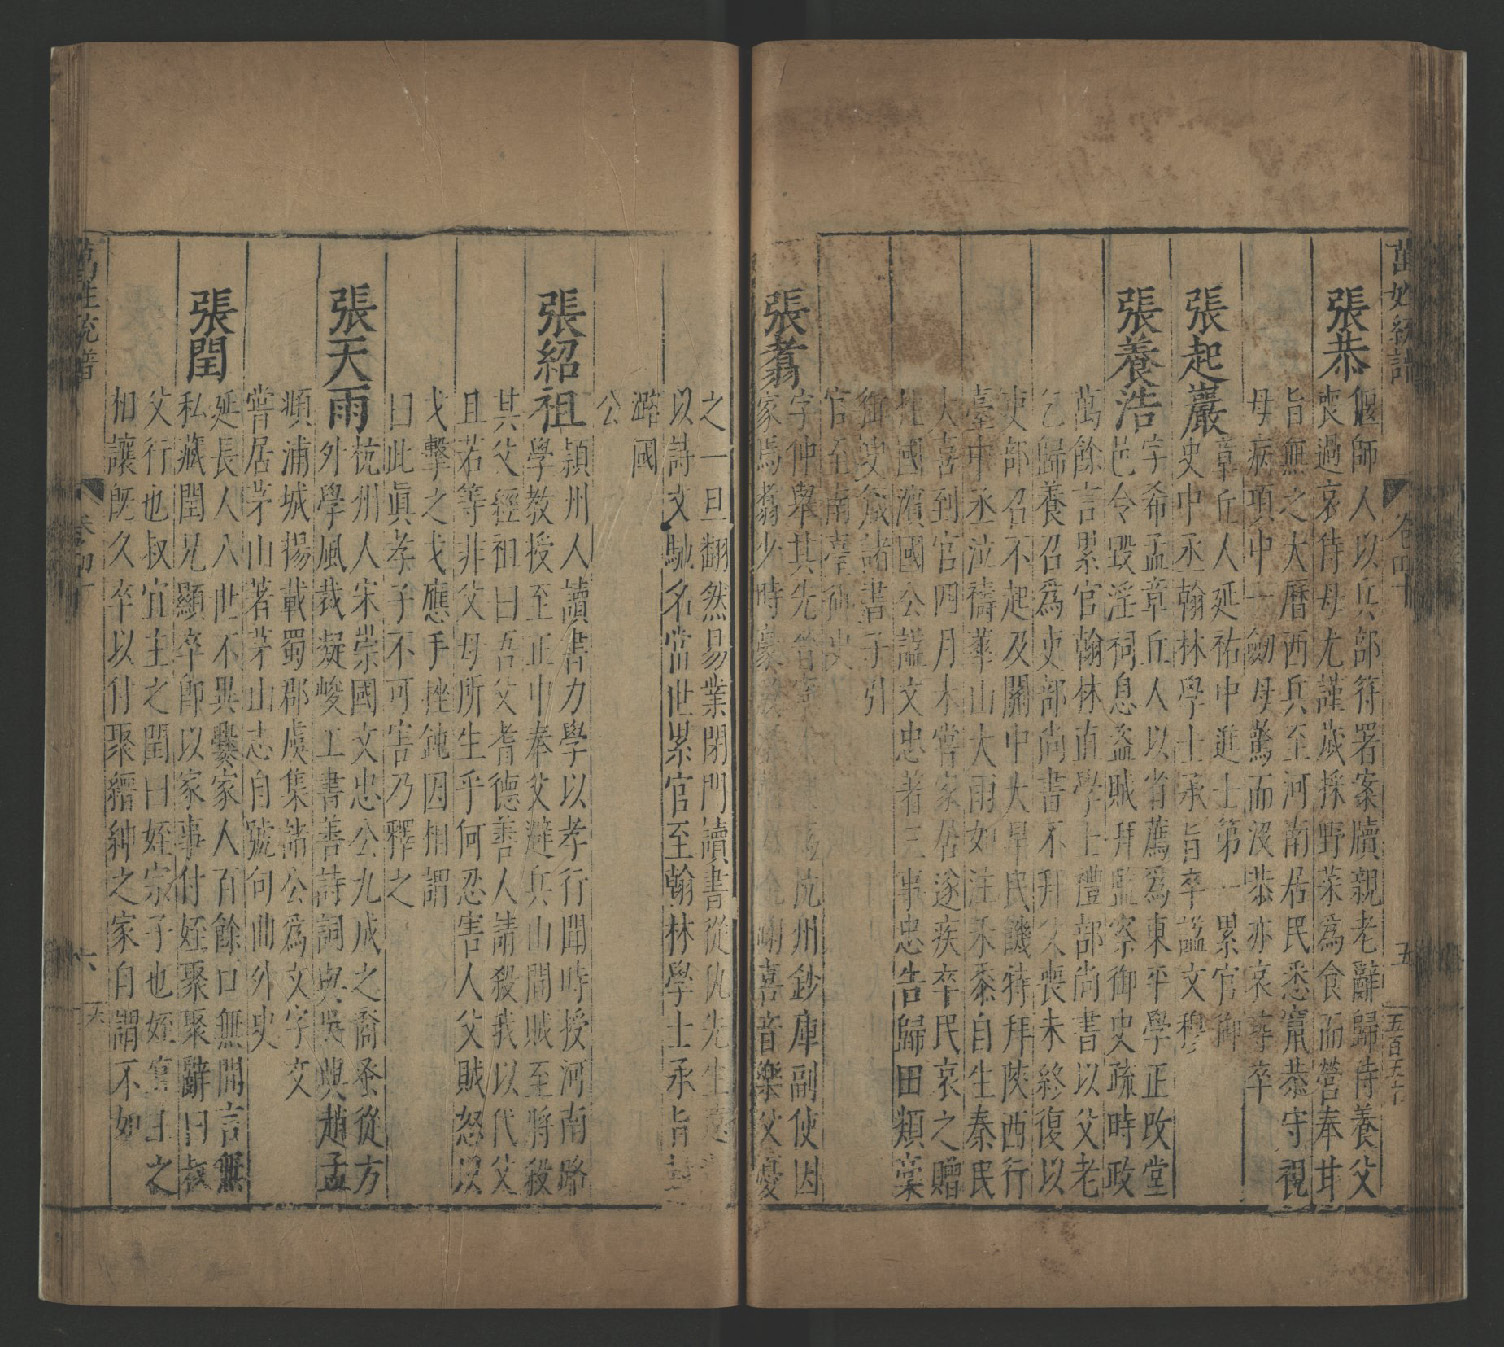 萬姓統譜 卷四十 五
張恭
偃師人以兵部符署案牘親老辭歸侍養父
喪過哀侍母尤謹歲採野菜爲食而營奉甘
旨無乏大曆西兵至河南居民悉竄恭守視
母病項中一劒母驚而沒恭亦哀毒卒
張起巖
章丘人延祐中進士第一累官御
史中丞翰林學士承旨卒謚文穆
張養浩
字希孟章丘人以省薦爲東平學正改堂
邑令毀淫祠息盗賊拜監察御史疏時政
萬餘言累官翰林直學士禮部尚書以父老
乞歸養召爲吏部尚書不拜父喪未終復以
吏部召不起及關中大旱民饑特拜陜西行
臺中丞泣禱華山大雨如注禾黍自生秦民
大喜到官四月未嘗家居遂疾卒民哀之贈
柱國濱國公謚文忠著三事忠告歸田類稾
御史箴諸書子引
官至南臺御史
張翥
字仲舉其先晉寧人 爲 州鈔庫副使因
家焉翥少時豪 喜音樂父憂
之一旦翻然易業閉門讀書從仇先生遠
以詩文馳名當世累官至翰林學士承旨封
潞國
公
張紹祖
潁州人讀書力學以孝行聞時授河南路
學教授至正中奉父避兵山間賊至將殺
其父紹祖曰吾父耆德善人請殺我以代父
且若等非父母所生乎何忍害人父賊怒以
戈擊之戈應手挫鈍因相謂
曰此眞孝子不可害乃釋之
張天雨
杭州人宋崇國文忠公九成之裔蚤從方
外學風裁凝峻工書善詩詞與吳興趙孟
頫浦城揚載蜀郡虞集諸公爲文字交
嘗居茅山著茅山志自號句曲外史
張閏
延長人八世不異爨家人百餘口無間言無
私藏閏兄顯卒即以家事付姪聚聚辭曰叔
父行也叔宜主之閏曰姪宗子也姪宜主之
相讓旣久卒以付聚縉紳之家自謂不如
萬姓統譜 卷四十 六